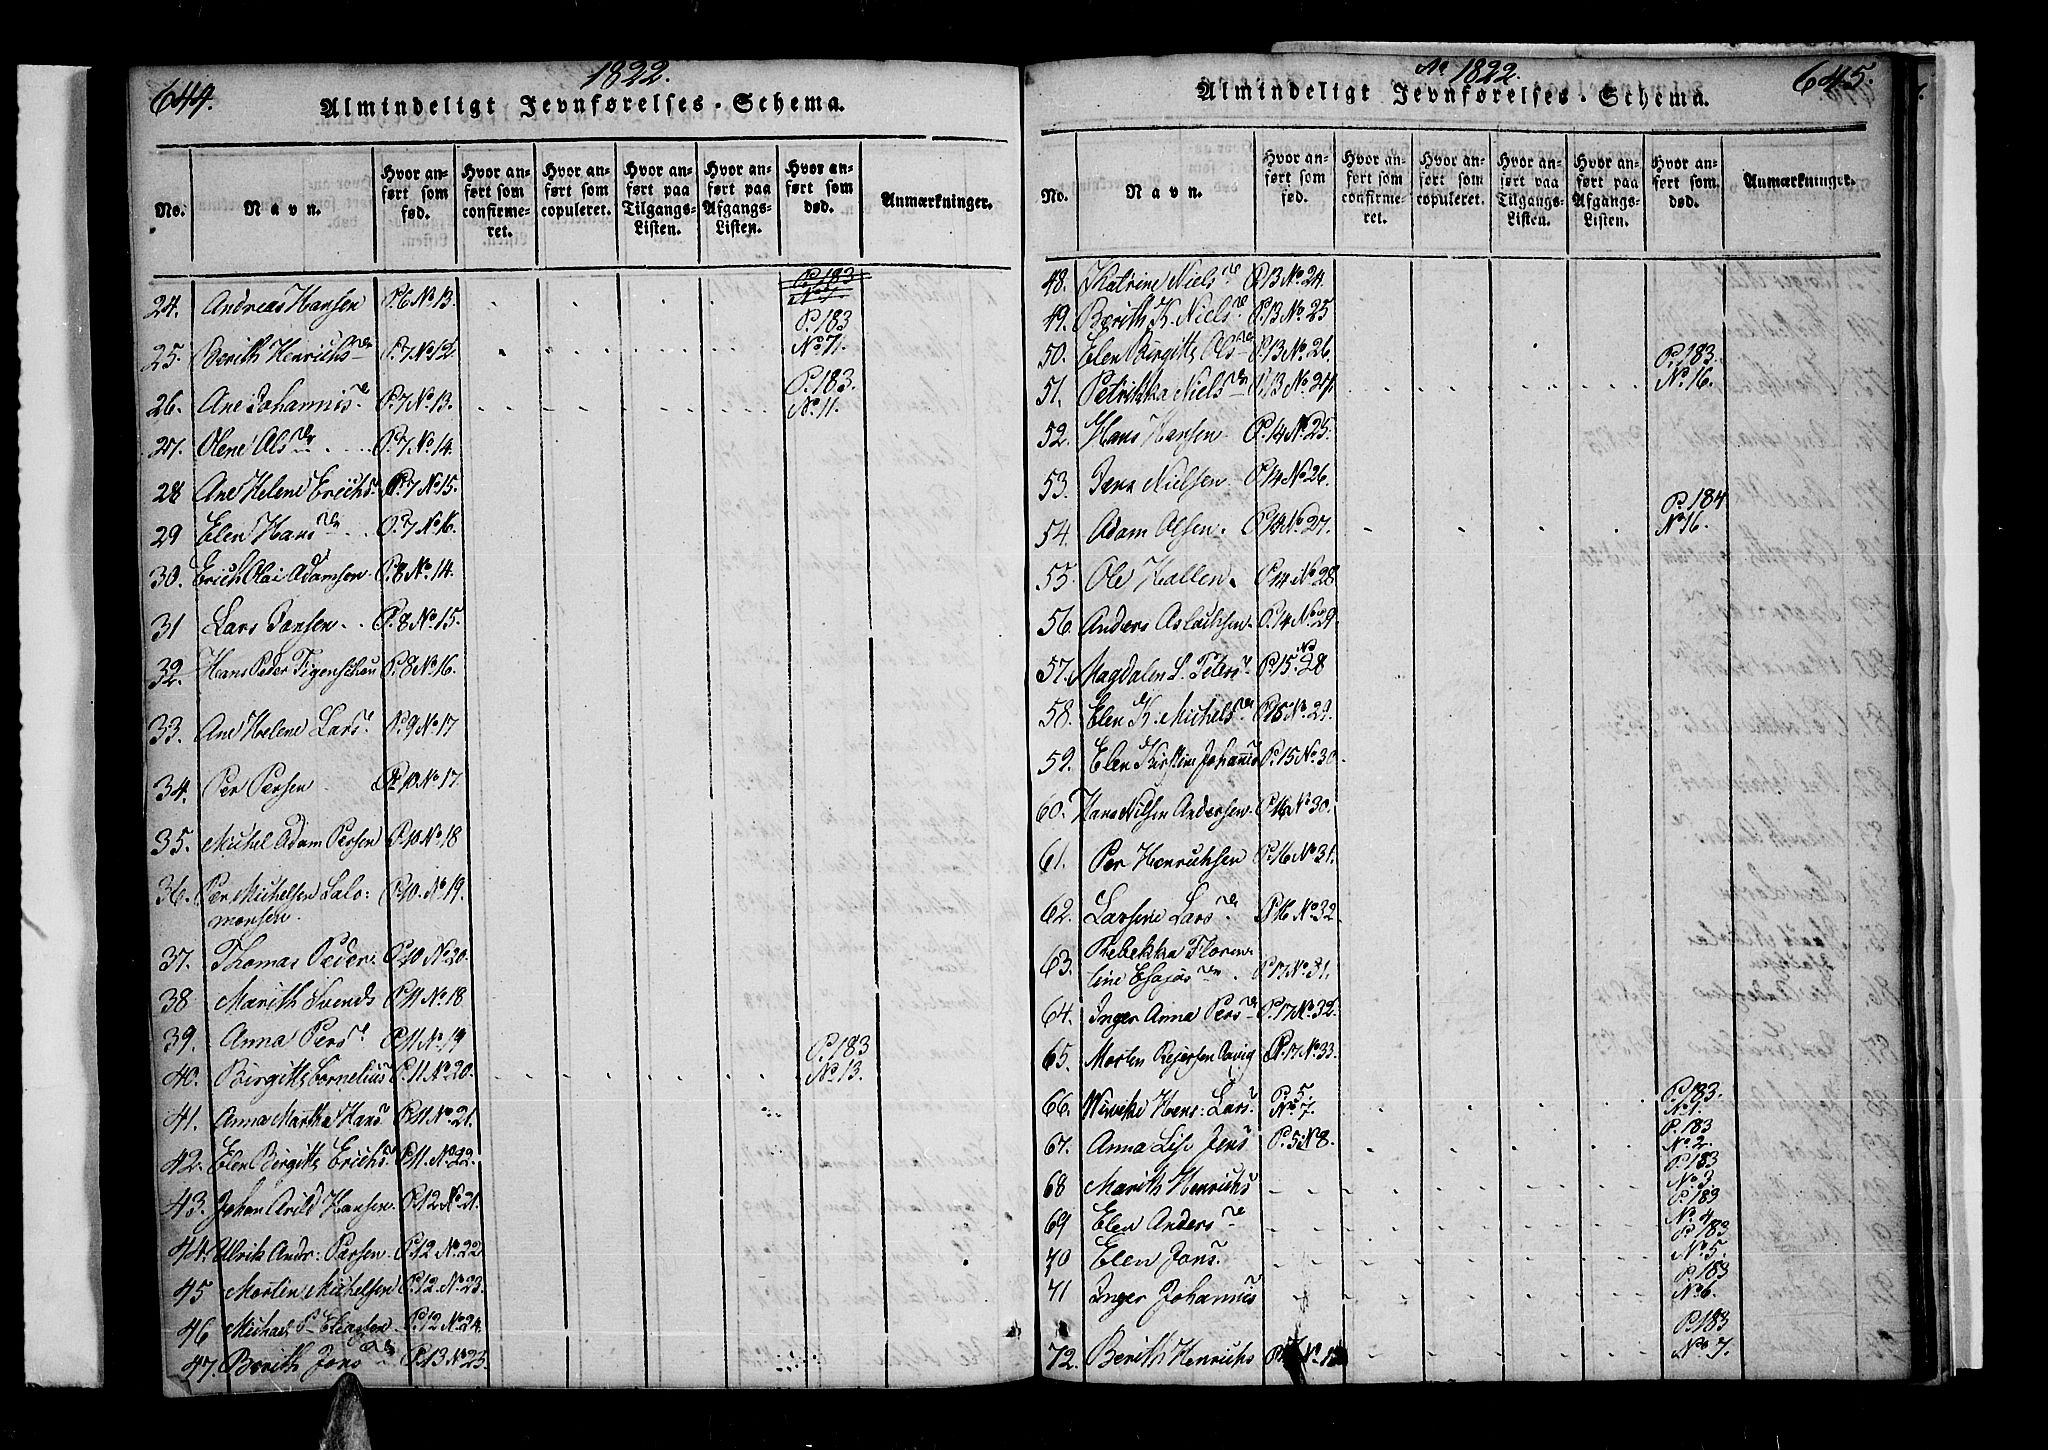 644.
1822.
Almindeligt Jevnførelses-Schema.
No.
Navn.
Hvor anført som fød.
Hvor anført som confirmeret.
Hvor anført som copuleret.
Hvor anført paa Tilgangs-Listen.
Hvor anført paa Afgangs-Listen.
Hvor anført som død.
Anmærkninger.
P. 183
No 7.
24. Andreas Hansen P. 6 No 13.
25. Berith Henrichsdr P. 7 No 12 P. 183 No 7.
26. Ane Johannisdr P. 7 No 13. P. 183. No 11.
27. Olene Olsdr P. 7. No. 14.
28 Ane Helene Erichs P. 7 No 15.
29 Elen Hansdr P. 7 No 16.
30. Erich Olai Adamsen P. 8 No 14.
31 Lars Jonsen P. 8 No 15.
32. Hans Peder Figenschau P. 8 No 16.
33. Ane Helene Larsdr P. 9 No 17
34. Per Persen P. 10 No 17.
35. Michel Adam Persen P. 10 No 18
36. Per Michelsen Salo:
monsen. P. 10. No 19.
37. Thomas Peder: P. 10 No 20.
38 Marith Svends P. 11 No 18
39. Anna Persdr P. 11 No 19
40. Birgitte Cornelius P. 11 No 20. P. 183 No 13.
41. Anna Martha Hansdr P. 11 No 21.
42. Elen Birgitte Erichs P. 11. No 22.
43. Johan Arild Hansen. P. 12 No 21.
44. Ulrik Andr: Persen. P. 12 No 22
45 Morten Michelsen P. 12. No 23.
46 Michael P. Eliassen P. 12 No 24.
47. Berith Jonsdr P. 13 No 23
Ao 1822.
645.
Almindeligt Jevnførelses-Schema.
No.
Navn.
Hvor anført som fød.
Hvor anført som confirmeret.
Hvor anført som copuleret.
Hvor anført paa Tilgangs-Listen.
Hvor anført paa Afgangs-Listen.
Hvor anført som død.
Anmærkninger.
48. Katrine Nielsdr P. 13 No 24.
49. Berith K. Nielsdr P. 13 No 25
50. Elen Birgitte Olsdr P. 13 No 26.
51. Petrikka Nielsdr P. 13 No 27. P. 183. No 16.
52. Hans Hansen P. 14 No 25.
53. Jens Nielsen P. 14 No 26.
54. Adam Olsen. P. 14 No 27. P. 184 No 16.
55. Ole Hallen. P. 14 No 28
56. Anders Aslachsen. P. 14 No 29.
57. Magdalen S. Petersdr P. 15. No 28
58. Elen K. Michelsdr P. 15 No 29.
59. Elen Kirstine Johannisdr P. 15 No 30.
60. Hans Nilsen Andersen P. 16 No 30.
61. Per Henrichsen P. 16 No 31.
62. Larsine Larsdr P. 16 No 32.
63. Rebekka Floren-
tine Esaiasdr P. 17 No 31.
64. Inger Anna Persdr P. 17 No 32.
65. Morten Rejersen P. 17 No 33.
66. Larsdr P. 5. No 7. P. 183. No 1.
67. Anna Lise Jensdr P. 5 No 8. P. 183 No 2.
68 Marith Henrichs P. 183 No 3.
69 Elen Andersdr P. 183 No 4.
70 Elen Jonsdr P. 183 No 5.
71 Inger Johannis P. 183 No 6.
72. Berith Henrichs P. 7 No 12 P. 183 No 7.